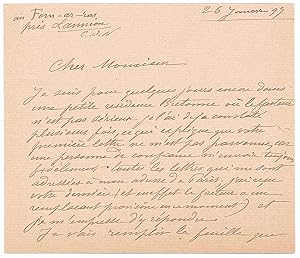 au Forn-ar-ros
près Lannion
C.d.N
26 Janvier 99
Cher Monsieur
Je suis pour quelques jours encore dans
une petite résidence Bretonne où le facteur
n'est pas sérieux je l'ai déjà constaté
plusieurs fois, ce qui explique que votre
première lettre ne m'est pas parvenue, car
une personne de confiance m'envoie toujours
fidèlement toutes les lettres qui me sont
adressées à mon adresse à Paris, j'ai reçu
votre dernière (et en effet le facteur a un
remplaçant provisoire en ce moment) et
je m'empresse d'y répondre
Je vais remplir la feuille que